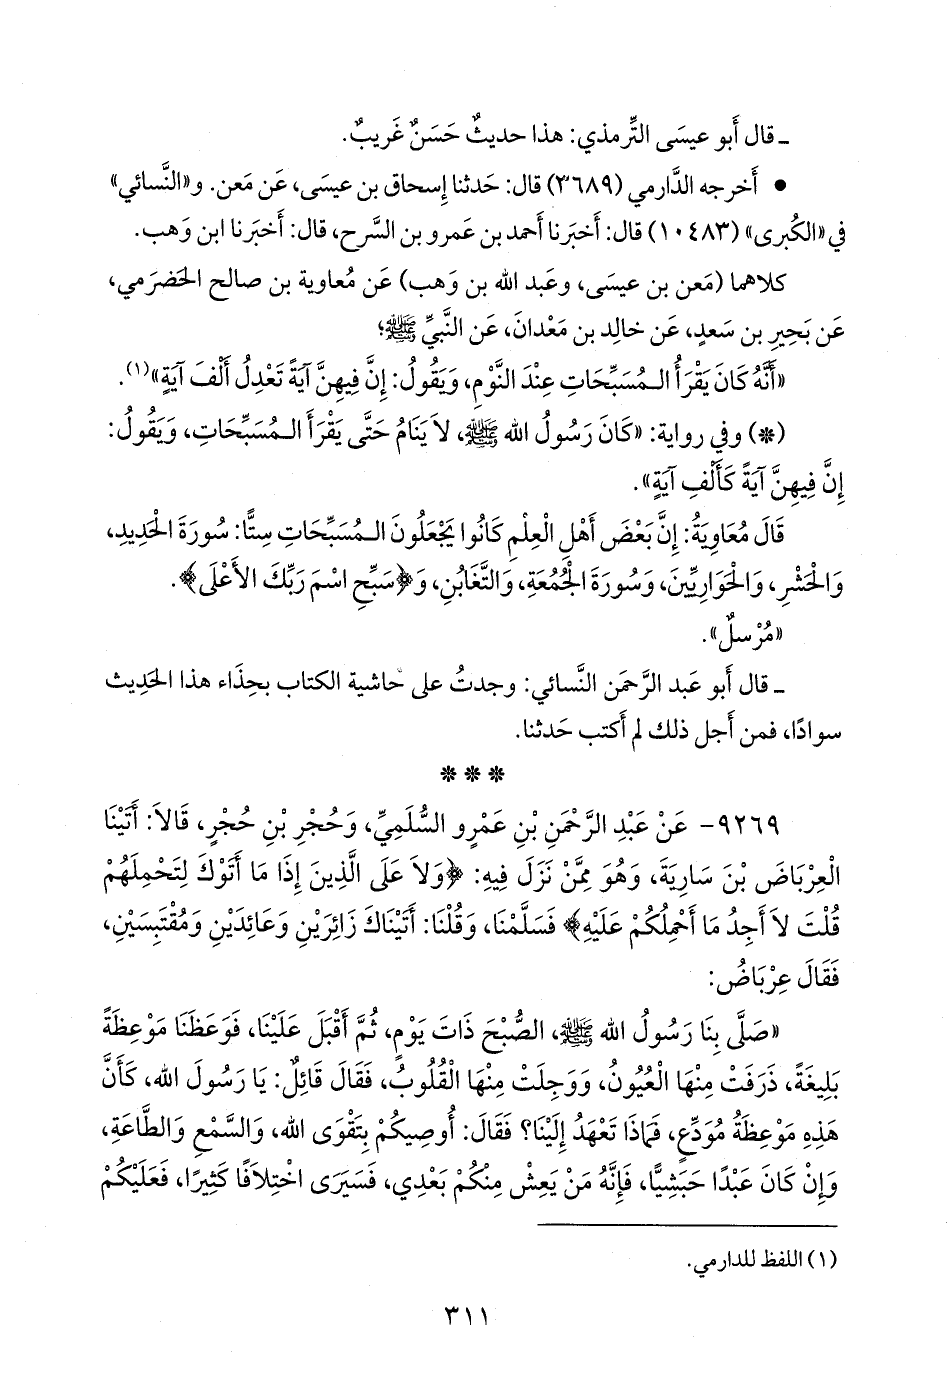 ـ قال أَبو عيسَى التِّرمذي: هذا حديثٌ حَسَنٌ غَريبٌ.
• أَخرجه الدَّارمي (٣٦٨٩) قال: حَدثنا إِسحاق بن عيسَى، عَن مَعن. و«النَّسائي»
في «الكُبرى» (١٠٤٨٣) قال: أَخبَرنا أَحمد بن عَمرو بن السَّرح، قال: أَخبَرنا ابن وَهب.
كلاهما (مَعن بن عيسَى، وعَبد الله بن وَهب) عَن مُعاوية بن صالح الحَضرَمي،
عَن بَحِير بن سَعد، عَن خالِد بن مَعْدانَ، عَن النَّبيِّ ﷺ؛
«أَنَّهُ كَانَ يَقْرَأُ الـمُسَبِّحَاتِ عِنْدَ النَّوْمِ، وَيَقُولُ: إِنَّ فِيهِنَّ آيَةً تَعْدِلُ أَلْفَ آيَةٍ»(١).
(*) وفي رواية: «كَانَ رَسُولُ الله ﷺ، لاَ يَنَامُ حَتَّى يَقْرَأَ الـمُسَبِّحَاتِ، وَيَقُولُ:
إِنَّ فِيهِنَّ آيَةً كَأَلْفِ آيَةٍ».
قَالَ مُعَاوِيَةُ: إِنَّ بَعْضَ أَهْلِ الْعِلْمِ كَانُوا يَجْعَلُونَ الـمُسَبِّحَاتِ سِتًّا: سُورَةَ الْحَدِيدِ،
وَالْحَشْرِ، وَالْحَوَارِيِّينَ، وَسُورَةَ الْجُمُعَةِ، وَالتَّغَابُنِ، وَ﴿سَبِّحِ اسْمَ رَبِّكَ الأَعْلَى﴾.
«مُرْسلٌ».
ـ قال أَبو عَبد الرَّحمَن النَّسائي: وجدتُ على حَاشية الكتاب بحِذَاء هذا الحَديث
سوادًا، فمن أَجل ذلك لم أَكتب حَدثنا.
***
٩٢٦٩- عَنْ عَبْدِ الرَّحْمَنِ بْنِ عَمْرٍو السُّلَمِيِّ، وَحُجْرِ بْنِ حُجْرٍ، قَالاَ: أَتَيْنَا
الْعِرْبَاضَ بْنَ سَارِيَةَ، وَهُوَ مِمَّنْ نَزَلَ فِيهِ: ﴿وَلاَ عَلَى الَّذِينَ إِذَا مَا أَتَوْكَ لِتَحْمِلَهُمْ
قُلْتَ لاَ أَجِدُ مَا أَحْمِلُكُمْ عَلَيْهِ﴾ فَسَلَّمْنَا، وَقُلْنَا: أَتَيْنَاكَ زَائِرَيْنِ وَعَائِدَيْنِ وَمُقْتَبِسَيْنِ،
فَقَالَ عِرْبَاضُ:
«صَلَّى بِنَا رَسُولُ الله ﷺ، الصُّبْحَ ذَاتَ يَوْمٍ، ثُمَّ أَقْبَلَ عَلَيْنَا، فَوَعَظَنَا مَوْعِظَةً
بَلِيغَةً، ذَرَفَتْ مِنْهَا الْعُيُونُ، وَوَجِلَتْ مِنْهَا الْقُلُوبُ، فَقَالَ قَائِلٌ: يَا رَسُولَ الله، كَأَنَّ
هَذِهِ مَوْعِظَةُ مُوَدِّعٍ، فَمَاذَا تَعْهَدُ إِلَيْنَا؟ فَقَالَ: أُوصِيكُمْ بِتَقْوَى الله، وَالسَّمْعِ وَالطَّاعَةِ،
وَإِنْ كَانَ عَبْدًا حَبَشِيًّا، فَإِنَّهُ مَنْ يَعِشْ مِنْكُمْ بَعْدِي، فَسَيَرَى اخْتِلاَفًا كَثِيرًا، فَعَلَيْكُمْ
(١) اللفظ للدارمي.
٣١١